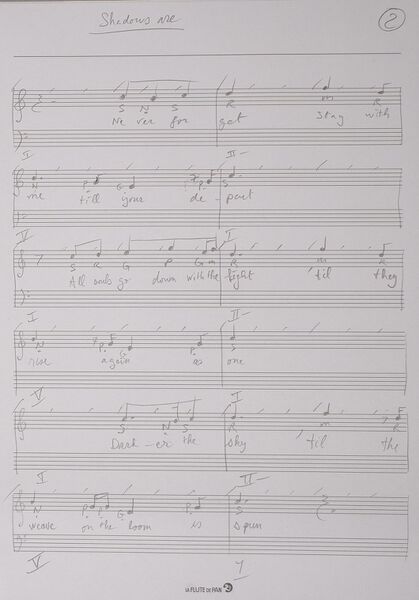 Shadows are
2
S N S R m R
Ne ver for get Stay with
I II-
N P G P S
me till your de - part
V I
S R G P G m R m R
All souls go down with the light 'til they
I II-
N P G P S
rise again as one
V I
S N S R m R
Dark - er the sky, 'til the
I II-
N P P G P S
weave on the loom is spun
V I
LA FLUTE DE PAN